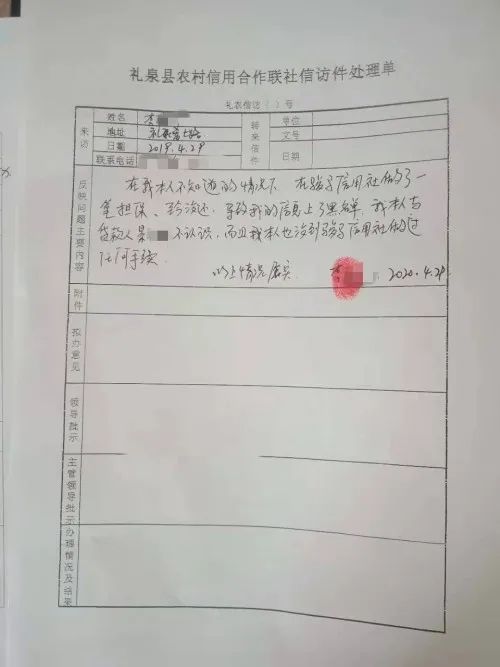 礼泉县农村信用合作联社信访件处理单
礼农信访（ ）号
来访
姓名 李
地址
日期 2019.4.29
联系电话
转来信件
单位
文号
日期
反映问题主要内容
在我本人不知道的情况下 在骏马信用社做了一
笔担保、到今没还、导致我的信息上了黑名单。我本人与
贷款人 不认识，而且我本人也没到骏马信用社做过
任何手续
以上情况属实 李 2020.4.29
附件
拟办意见
领导批示
主管领导批示办理情况及结果